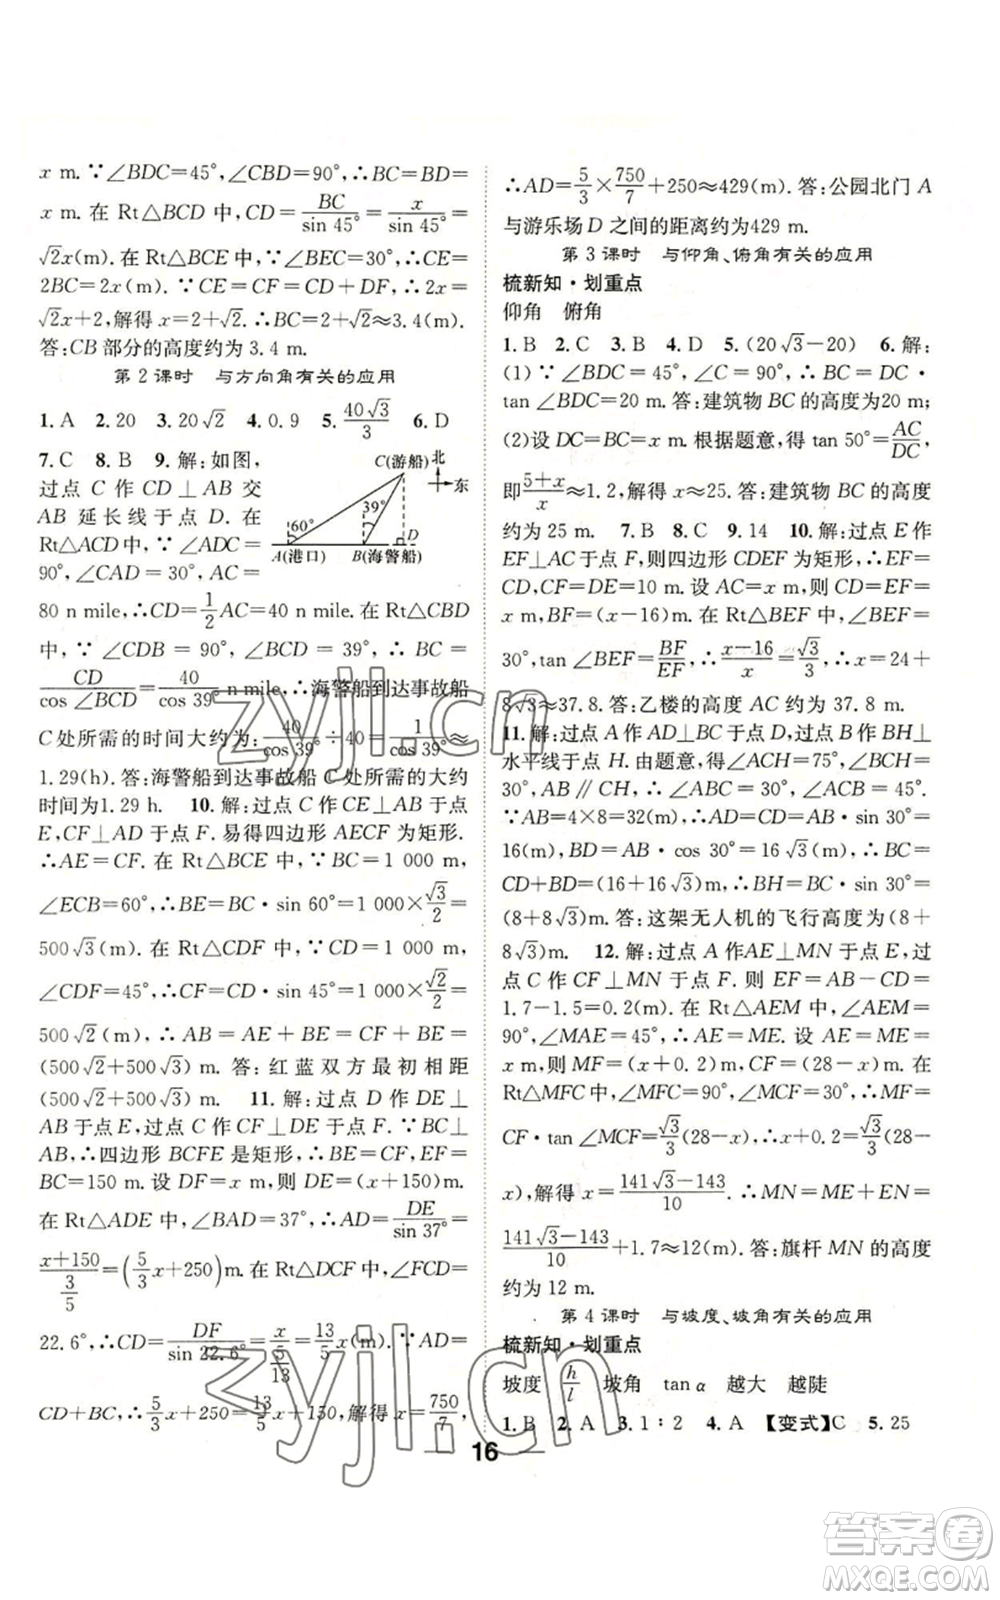 x m. ∵∠BDC=45°,∠CBD=90°,∴BC=BD=
x m. 在 Rt△BCD 中,CD=BC/sin 45°=x/sin 45°=
√2x(m). 在 Rt△BCE 中,∵∠BEC=30°,∴CE=
2BC=2x(m),∴CE=CF=CD+DF,∴2x=
√2x+2,解得 x=2+√2. ∴BC=2+√2≈3.4(m).
答:CB 部分的高度约为 3.4 m.
第 2 课时 与方向角有关的应用
1. A 2. 20 3. 20√2 4. 0.9 5. 40√3/3 6. D
7. C 8. B 9. 解:如图,
过点 C 作 CD⊥AB 交
AB 延长线于点 D. 在
Rt△ACD 中,∵∠ADC=
90°,∠CAD=30°,AC=
C(游船) 北
东
39°
60°
D
A(港口) B(海警船)
80 n mile,∴CD=1/2AC=40 n mile. 在 Rt△CBD
中,∵∠CDB=90°,∠BCD=39°,∴BC=
CD/cos∠BCD=40/cos 39° n mile,∴海警船到达事故船
C 处所需的时间大约为:40/cos 39°÷40=1/cos 39°≈
1.29(h). 答:海警船到达事故船 C 处所需的大约
时间为1.29 h. 10. 解:过点 C 作 CE⊥AB 于点
E,CF⊥AD 于点 F. 易得四边形 AECF 为矩形.
∴AE=CF. 在 Rt△BCE 中,∵BC=1 000 m,
∠ECB=60°,∴BE=BC·sin 60°=1 000×√3/2=
500√3(m). 在 Rt△CDF 中,∵CD=1 000 m,
∠CDF=45°,∴CF=CD·sin 45°=1 000×√2/2=
500√2(m),∴AB=AE+BE=CF+BE=
(500√2+500√3)m. 答:红蓝双方最初相距
(500√2+500√3)m. 11. 解:过点 D 作 DE⊥
AB 于点 E,过点 C 作 CF⊥DE 于点 F. ∵BC⊥
AB,∴四边形 BCFE 是矩形,∴BE=CF,EF=
BC=150 m. 设 DF=x m,则 DE=(x+150)m.
在 Rt△ADE 中,∠BAD=37°,∴AD=DE/sin 37°=
(x+150)/(3/5)=(5/3x+250)m. 在 Rt△DCF 中,∠FCD=
22.6°,∴CD=DF/sin 22.6°=x/(5/13)=13/5x(m). ∵AD=
CD+BC,∴5/3x+250=13/5x+150,解得 x=750/7,
∴AD=5/3×750/7+250≈429(m). 答:公园北门 A
与游乐场 D 之间的距离约为429 m.
第 3 课时 与仰角、俯角有关的应用
梳新知·划重点
仰角 俯角
1. B 2. C 3. B 4. D 5. (20√3-20) 6. 解:
(1)∵∠BDC=45°,∠C=90°,∴BC=DC·
tan∠BDC=20 m. 答:建筑物 BC 的高度为20 m;
(2)设 DC=BC=x m. 根据题意,得 tan 50°=AC/DC,
即(5+x)/x≈1.2,解得 x≈25. 答:建筑物 BC 的高度
约为 25 m. 7. B 8. C 9. 14 10. 解:过点 E 作
EF⊥AC 于点 F,则四边形 CDEF 为矩形,∴EF=
CD,CF=DE=10 m. 设 AC=x m,则 CD=EF=
x m,BF=(x-16)m. 在 Rt△BEF 中,∠BEF=
30°,tan∠BEF=BF/EF,∴(x-16)/x=√3/3,∴x=24+
8√3≈37.8. 答:乙楼的高度 AC 约为 37.8 m.
11. 解:过点 A 作AD⊥BC 于点 D,过点 B 作BH⊥
水平线于点 H. 由题意,得∠ACH=75°,∠BCH=
30°,AB∥CH,∴∠ABC=30°,∠ACB=45°.
∵AB=4×8=32(m),∴AD=CD=AB·sin 30°=
16(m),BD=AB·cos 30°=16√3(m),∴BC=
CD+BD=(16+16√3)m,∴BH=BC·sin 30°=
(8+8√3)m. 答:这架无人机的飞行高度为(8+
8√3)m. 12. 解:过点 A 作AE⊥MN 于点 E,过
点 C 作 CF⊥MN 于点 F. 则 EF=AB-CD=
1.7-1.5=0.2(m). 在 Rt△AEM 中,∠AEM=
90°,∠MAE=45°,∴AE=ME. 设 AE=ME=
x m,则 MF=(x+0.2)m,CF=(28-x)m. 在
Rt△MFC 中,∠MFC=90°,∠MCF=30°,∴MF=
CF·tan∠MCF=√3/3(28-x),∴x+0.2=√3/3(28-
x),解得 x=(141√3-143)/10. ∴MN=ME+EN=
(141√3-143)/10+1.7≈12(m). 答:旗杆 MN 的高度
约为 12 m.
第 4 课时 与坡度、坡角有关的应用
梳新知·划重点
坡度 h/l 坡角 tan α 越大 越陡
1. B 2. A 3. 1∶2 4. A 【变式】C 5. 25
16
zyjl.cn
zyjl.cn
答案圈
MXQE.COM